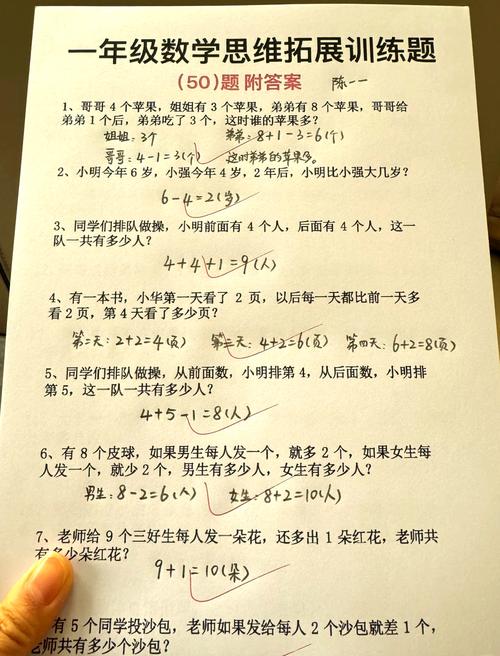 一年级数学思维拓展训练题
（50）题 附答案 陈一一
1、哥哥 4 个苹果，姐姐有 3 个苹果，弟弟有 8 个苹果，哥哥给
弟弟 1 个后，弟弟吃了 3 个，这时谁的苹果多？
姐姐：3个 弟弟：8+1-3=6(个)
哥哥：4-1=3(个) 这时弟弟的苹果多。
2、小明今年 6 岁，小强今年 4 岁，2 年后，小明比小强大几岁？
6-4=2(岁)
3、同学们排队做操，小明前面有 4 个人，后面有 4 个人，这一
队一共有多少人？
4+4+1=9(人)
4、有一本书，小华第一天看了 2 页，以后每一天都比前一天多
看 2 页，第 4 天看了多少页？
第二天：2+2=4(页) 第三天：4+2=6(页) 第四天：6+2=8(页)
5、同学们排队做操，从前面数，小明排第 4，从后面数，小明排
第 5，这一队一共有多少人？
4+5-1=8(人)
6、有 8 个皮球，如果男生每人发一个，就多 2 个，如果女生每
人发一个，就少 2 个，男生有多少人，女生有多少人？
男生：8-2=6(人) 女生：8+2=10(人)
7、老师给 9 个三好生每人发一朵花，还多出 1 朵红花，老师共
有多少朵红花？
9+1=10(朵)
有 5 个同学投沙包，老师如果发给每人 2 个沙包就差 1 个，
老师共有多少个沙包？